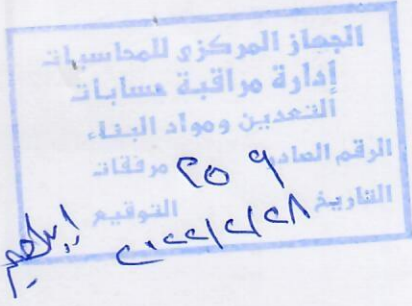 الجهاز المركزى للمحاسبات
إدارة مراقبة حسابات
التعدين ومواد البناء
الرقم الصادر ٢٥٩ مرفقات
التاريخ ٢٠٢٢/٢/٢٨ التوقيع